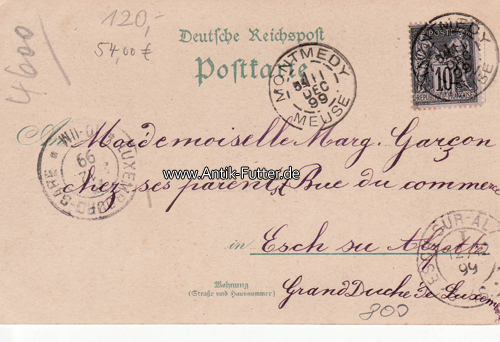 120,-
54,00 €
4600
Deutsche Reichspost
Postkarte
MONTMEDY
11
DEC
99
MEUSE
10
An
Mademoiselle Marg. Garçon
www.Antik-Futter.de
chez ses parents Rue du commerce
in Esch su Alzette
Wohnung
(Straße und Hausnummer)
Grand Duché de Luxem
800
LUXEMBOURG-GARE
99
ESCH-SUR-AL
99